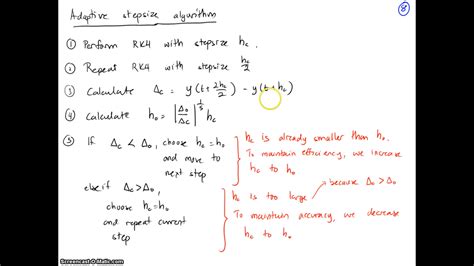 Adaptive stepsize algorithm
8
① Perform RK4 with stepsize h_c .
② Repeat RK4 with stepsize h_c/2
③ Calculate Δ_c = y(t + 2h_c/2) - y(t + h_c)
④ Calculate h_0 = |Δ_0/Δ_c|^(1/5) h_c
⑤ If Δ_c < Δ_0, choose h_c = h_0
and move to
next step
h_c is already smaller than h_0.
To maintain efficiency, we increase
h_c to h_0
else if Δ_c > Δ_0,
choose h_c = h_0
and repeat current
step
h_c is too large
because Δ_c > Δ_0
To maintain accuracy, we decrease
h_c to h_0
Screencast-O-Matic.com